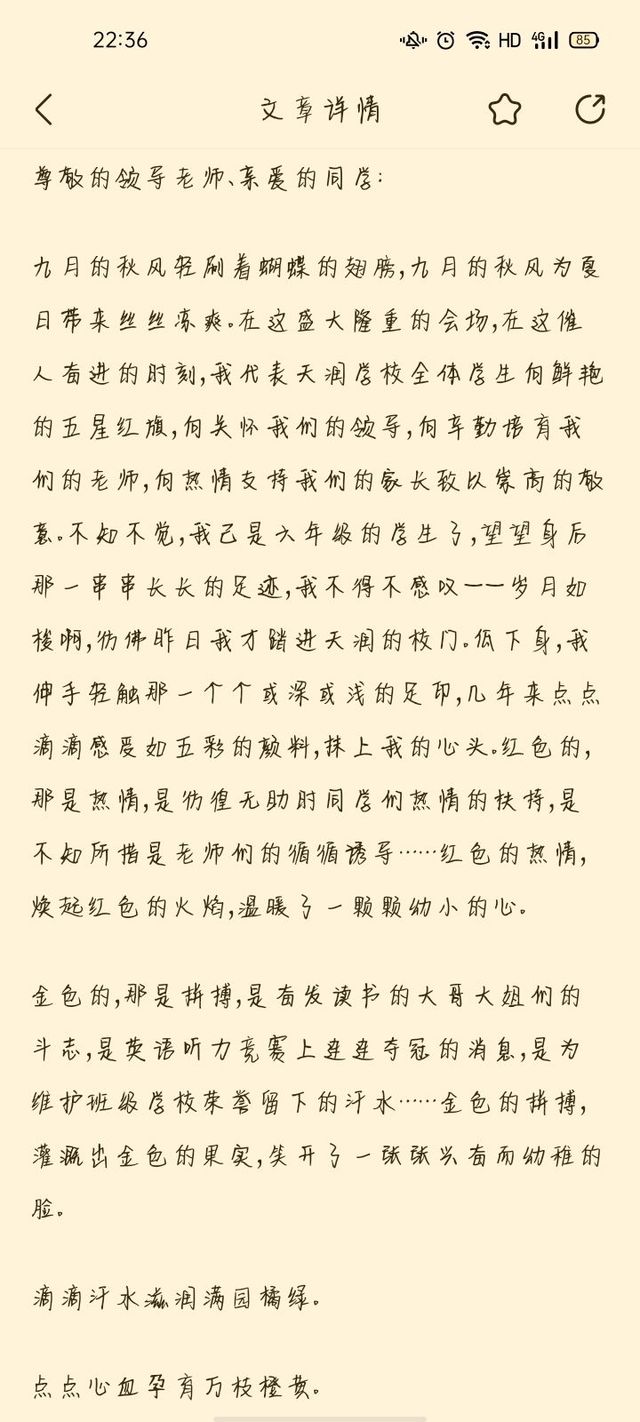 22:36
HD 4G 85
文章详情
尊敬的领导老师、亲爱的同学:
九月的秋风轻刷着蝴蝶的翅膀,九月的秋风为夏
日带来丝丝凉爽。在这盛大隆重的会场,在这催
人奋进的时刻,我代表天润学校全体学生向鲜艳
的五星红旗,向关怀我们的领导,向辛勤培育我
们的老师,向热情支持我们的家长致以崇高的敬
意。不知不觉,我已是六年级的学生了,望望身后
那一串串长长的足迹,我不得不感叹——岁月如
梭啊,彷佛昨日我才踏进天润的校门。低下身,我
伸手轻触那一个个或深或浅的足印,几年来点点
滴滴感受如五彩的颜料,抹上我的心头。红色的,
那是热情,是彷徨无助时同学们热情的扶持,是
不知所措是老师们的循循诱导……红色的热情,
焕起红色的火焰,温暖了一颗颗幼小的心。
金色的,那是拼搏,是奋发读书的大哥大姐们的
斗志,是英语听力竞赛上连连夺冠的消息,是为
维护班级学校荣誉留下的汗水……金色的拼搏,
灌溉出金色的果实,笑开了一张张兴奋而幼稚的
脸。
滴滴汗水滋润满园橘绿。
点点心血孕育万枝橙黄。